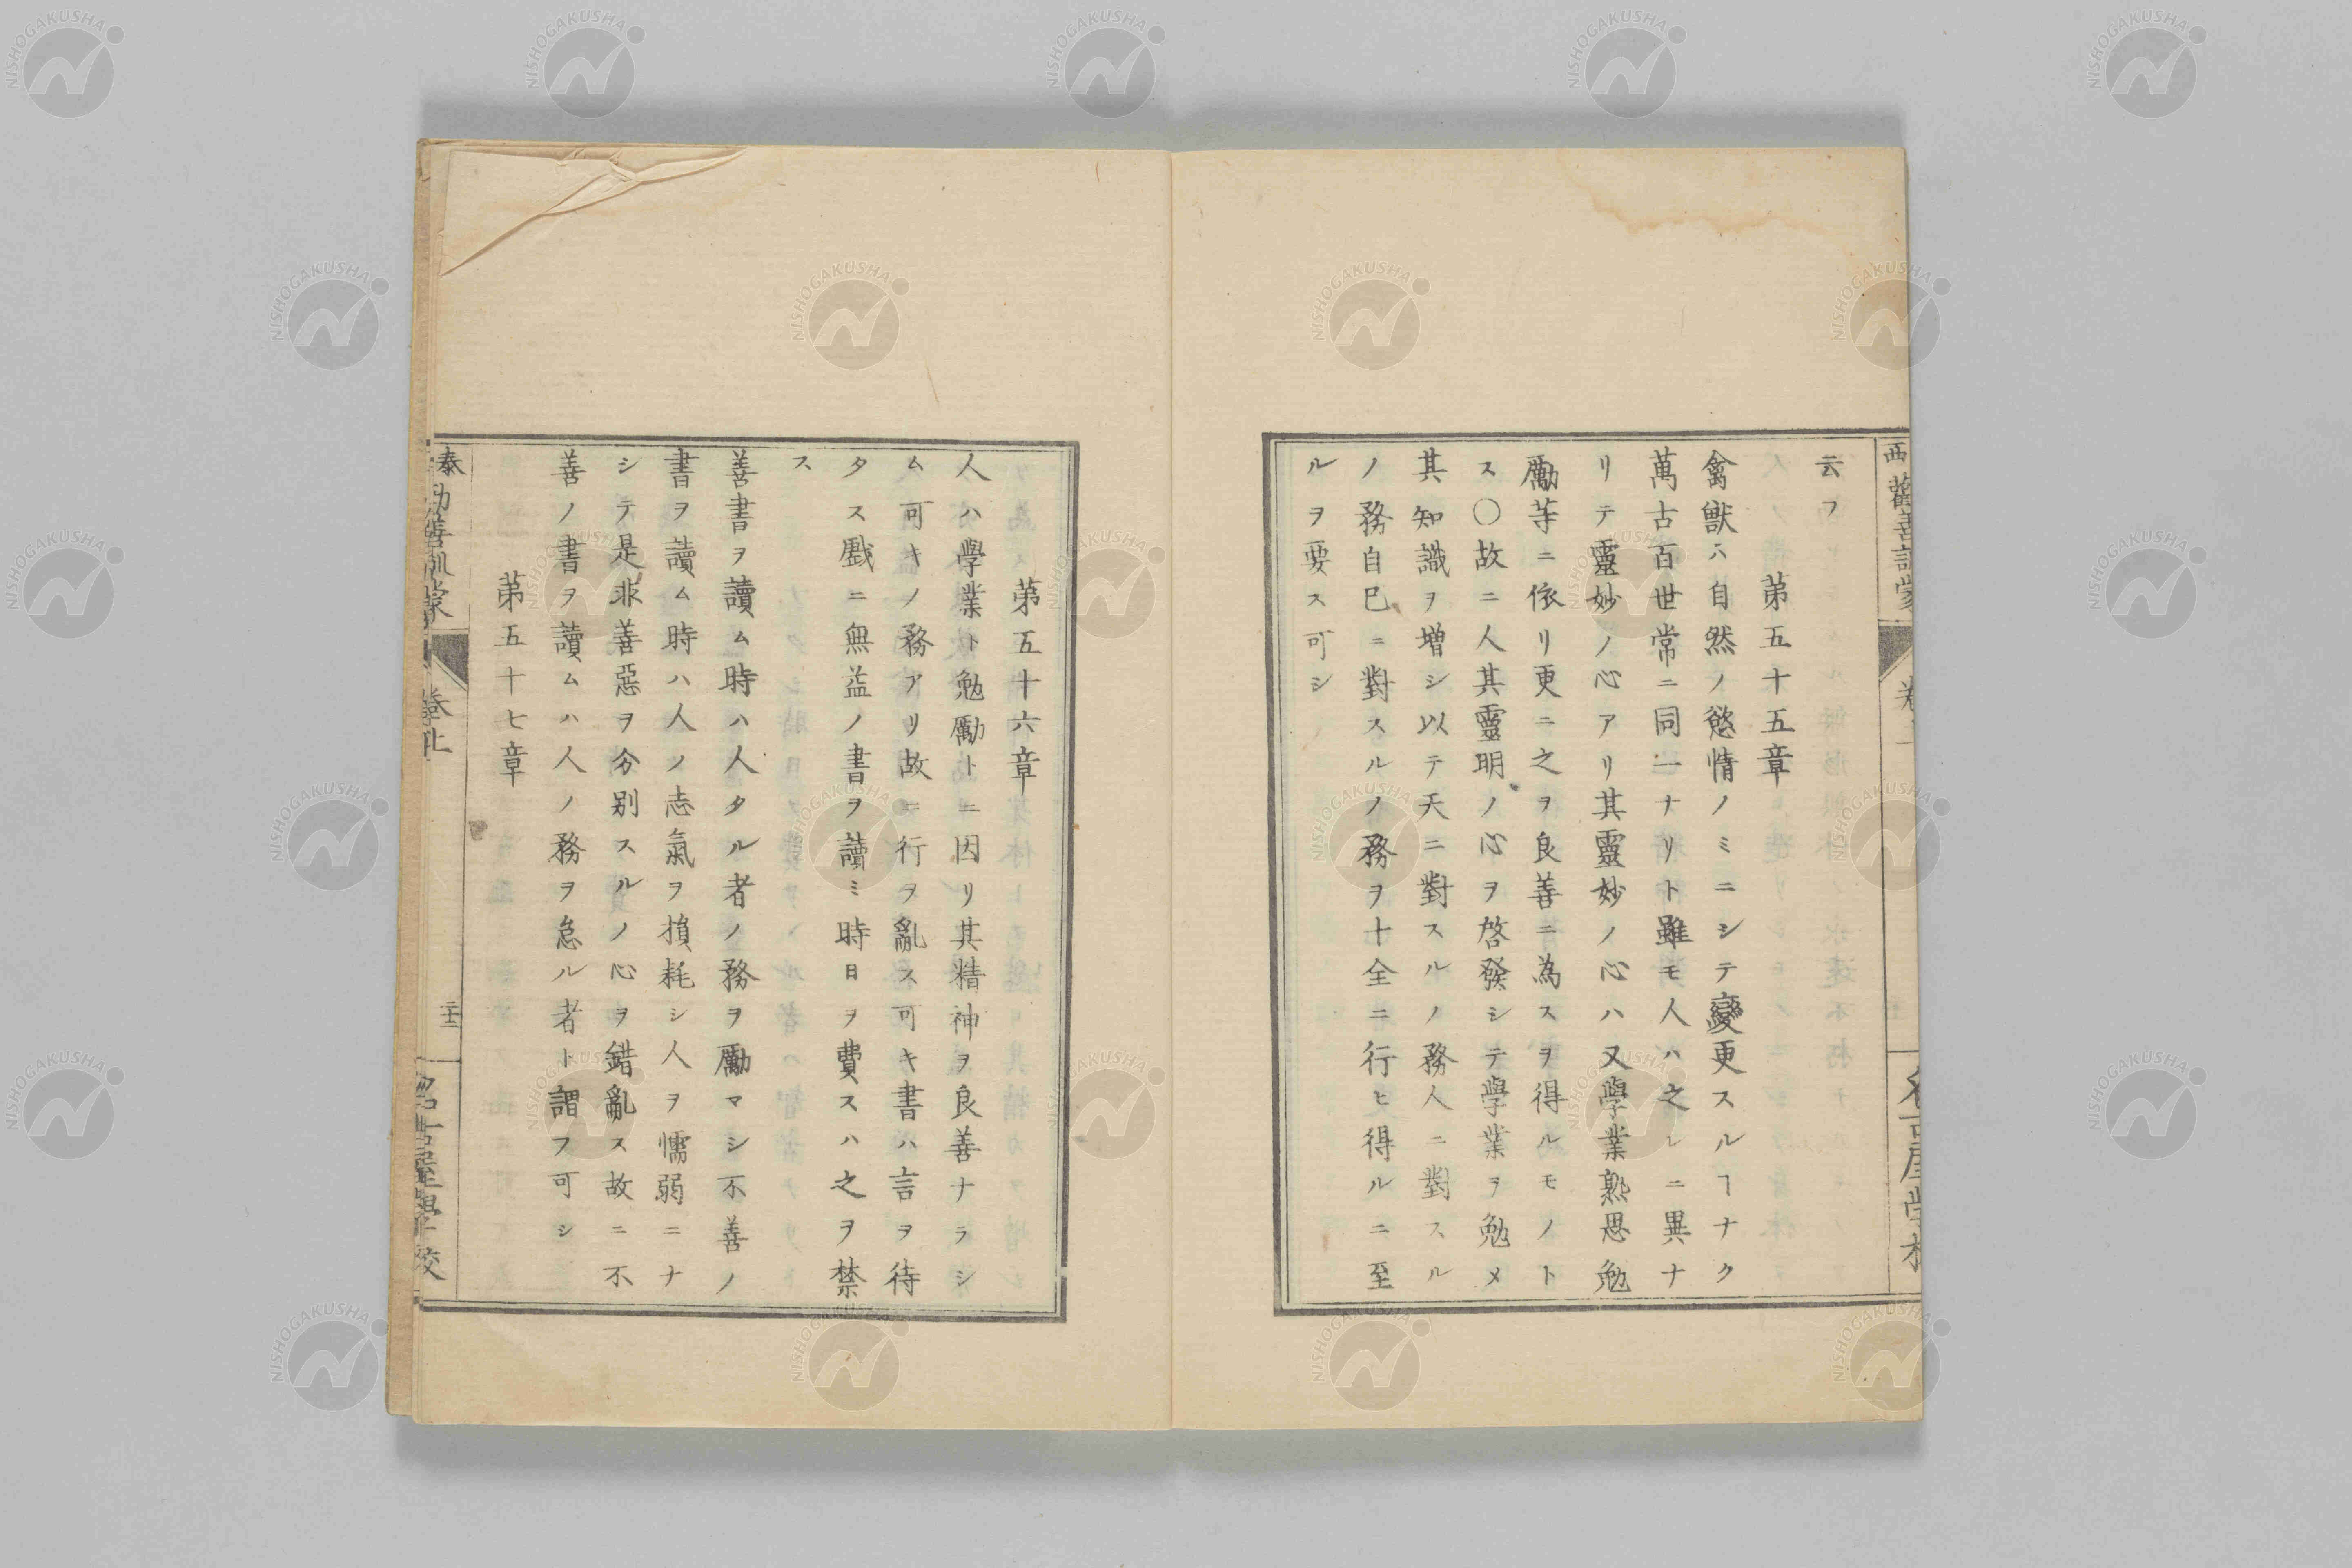 云フ
第五十五章
禽獸ハ自然ノ慾情ノミニシテ變更スルヿナク
萬古百世常ニ同一ナリト雖モ人ハ之レニ異ナ
リテ靈妙ノ心アリ其靈妙ノ心ハ又學業熟思勉
勵等ニ依リ更ニ之ヲ良善ニ為スヲ得ルモノト
ス〇故ニ人其靈明ノ心ヲ啓發シテ學業ヲ勉メ
其知識ヲ増シ以テ天ニ對スルノ務人ニ對スル
ノ務自己ニ對スルノ務ヲ十全ニ行ヒ得ルニ至
ルヲ要ス可シ
第五十六章
人ハ學業ト勉勵トニ因リ其精神ヲ良善ナラシ
ム可キノ務アリ故ニ行ヲ亂ス可キ書ハ言ヲ待
タス戲ニ無益ノ書ヲ讀ミ時日ヲ費スハ之ヲ禁
ス
善書ヲ讀ム時ハ人タル者ノ務ヲ勵マシ不善ノ
書ヲ讀ム時ハ人ノ志氣ヲ損耗シ人ヲ懦弱ニナ
シテ是非善惡ヲ分别スルノ心ヲ錯亂ス故ニ不
善ノ書ヲ讀ムハ人ノ務ヲ怠ル者ト謂フ可シ
第五十七章
泰 勸善訓蒙
卷上
二十三
名古屋學校
西 勸善訓蒙
NISHOGAKUSHA